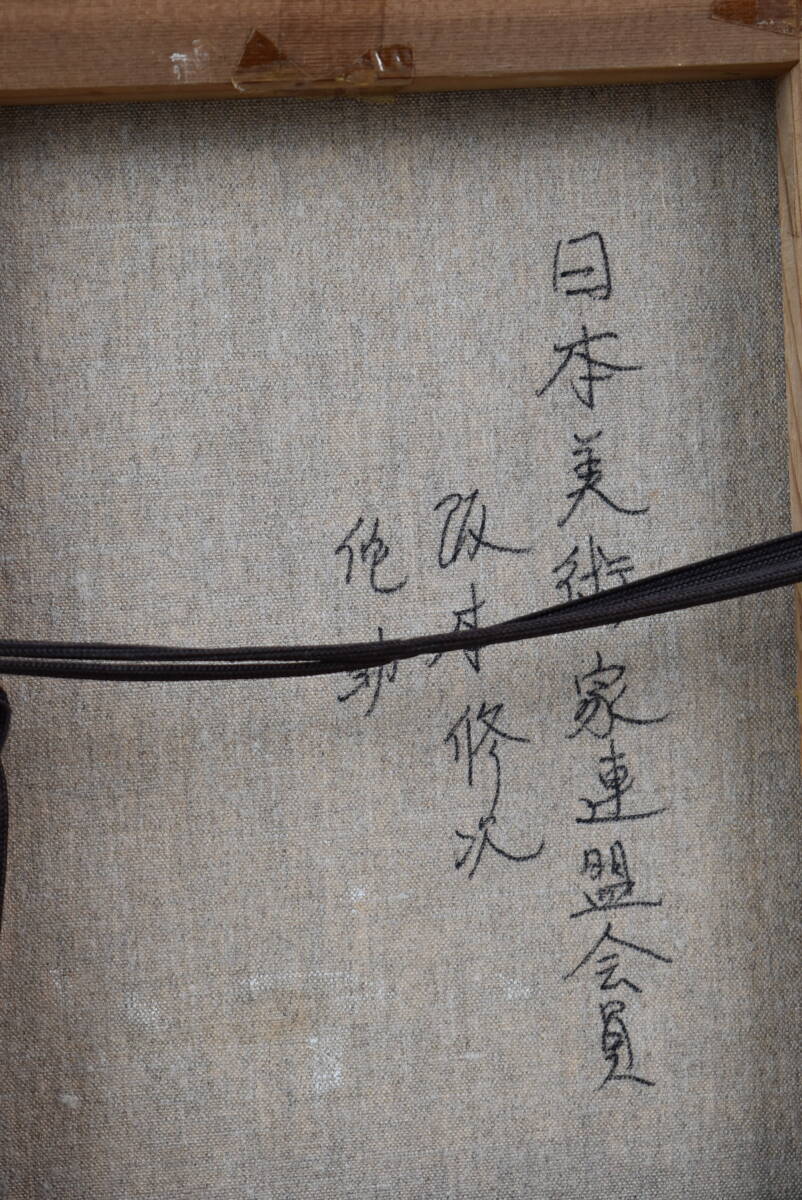 日本美術家連盟会員
阪本修次